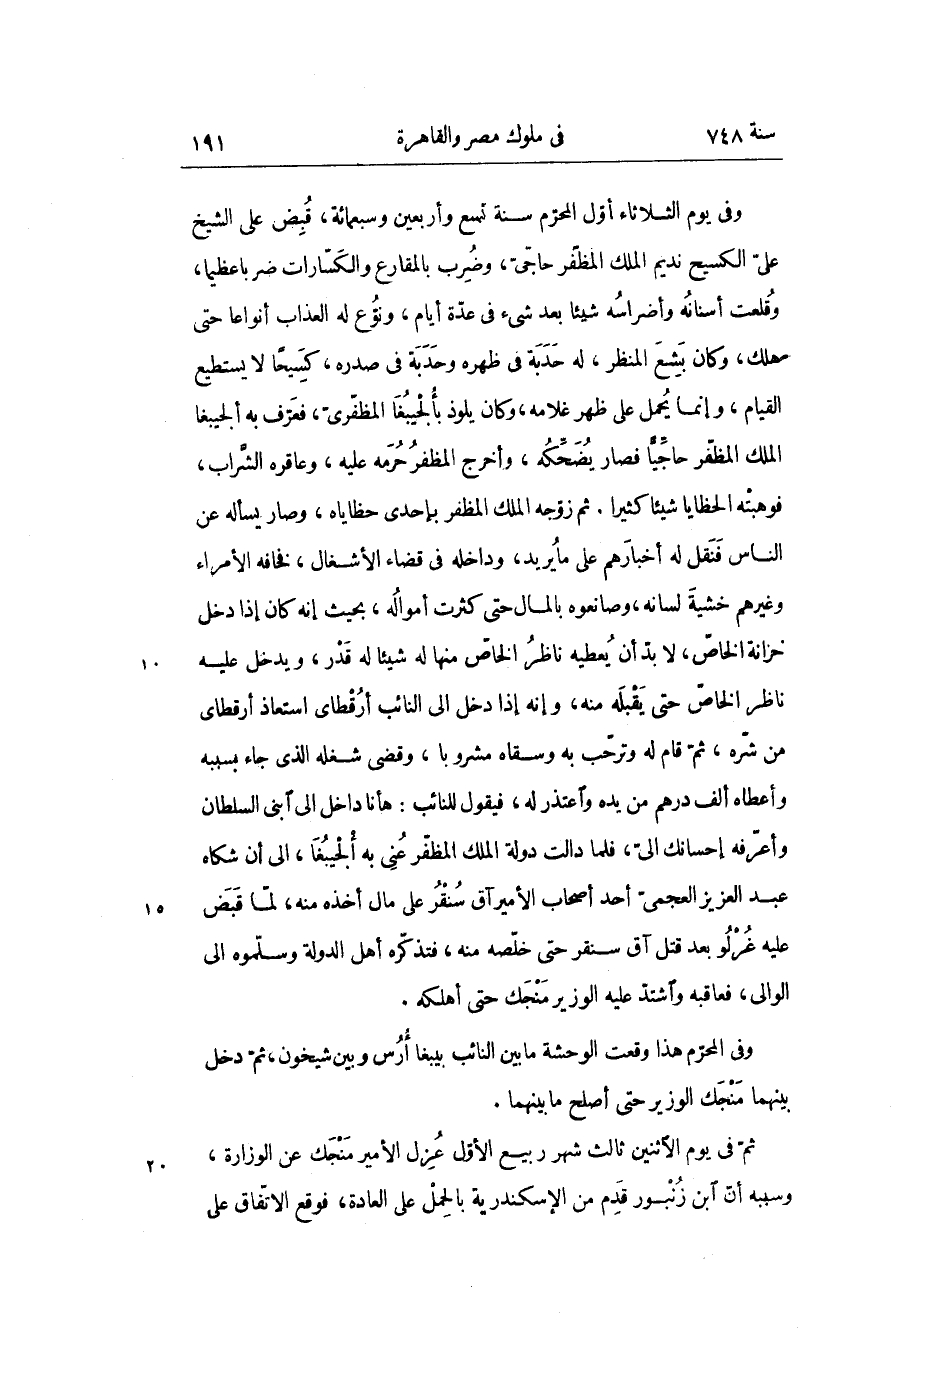 سنة ٧٤٨ فى ملوك مصر والقاهرة ١٩١
وفى يوم الثـلاثاء أوّل المحرّم سـنة تسع وأربعين وسبعمائة، قُبِض على الشيخ
علىّ الكسيح نديم الملك المظفّر حاجّىّ، وضُرِب بالمقارع والكَسّارات ضربا عظيما،
وقُلعت أسنانُه وأضراسُه شيئا بعد شىء فى عدّة أيام، ونوُّع له العذاب أنواعا حتى
هلك، وكان بَشِعَ المنظر، له حَدَبَة فى ظهره وحَدَبَة فى صدره، كَسِيحًا لا يستطيع
القيام، وإنمـا يُحمل على ظهر غلامه، وكان يلوذ بأُلْجِيبُغَا المظفّرىّ، فعَرّف به ألجيبغا
الملك المظفّر حاجِّيًّا فصار يُضَحِّكُه، وأخرج المظفرُ حُرَمه عليه، وعاقره الشَّراب،
فوهبتْه الحظايا شيئا كثيرا. ثم زوّجه الملك المظفر بإحدى حظاياه، وصار يسأله عن
النـاس فَنَقل له أخبارَهم على ما يُريد، وداخله فى قضاء الأشـغال، فخافه الأمراء
وغيرهم خشيةَ لسانه، وصانعوه بالمـال حتى كثرت أموالُه، بحيث إنه كان إذا دخل
خزانة الخاصّ، لا بدّ أن يُعطيه ناظرُ الخاصّ منها له شيئا له قَدْر، ويدخل عليـه ١٠
ناظر الخاصّ حتى يَقْبلَه منه، وإنه إذا دخل الى النائب أُرُقْطاى استعاذ أرقطاى
من شرّه، ثمّ قام له وترحّب به وسـقاه مشروبا، وقضى شـغله الذى جاء بسببه
وأعطاه ألف درهم من يده وٱعتذر له، فيقول للنائب : هأنا داخل الى ٱبنى السلطان
وأعرّفه إحسانك الىّ، فلما دالت دولة الملك المظفّر عُنِى به أُلْجِيبُغَا، الى أن شكاه
عبـد العزيز العجمىّ أحد أصحاب الأمير آق سُنْقُر على مال أخذه منه، لمّـا قَبَض ١٥
عليه غُرْلُو بعد قتل آق سـنقر حتى خلّصه منه، فتذكّره أهل الدولة وسـلّموه الى
الوالى، فعاقبه وٱشتدّ عليه الوزير مَنْجَك حتى أهلكه.
وفى المحرّم هذا وقعت الوحشة ما بين النائب بيبغا أُرُس وبين شيخون، ثمّ دخل
بينهما مَنْجَك الوزير حتى أصلح ما بينهما.
ثمّ فى يوم الٱثنين ثالث شهر ربيـع الأوّل عُزِل الأمير مَنْجَك عن الوزارة، ٢٠
وسببه أنّ ٱبن زُنْبـور قَدِم من الإسكندرية بالحِمْل على العادة، فوقع الاتّفاق على